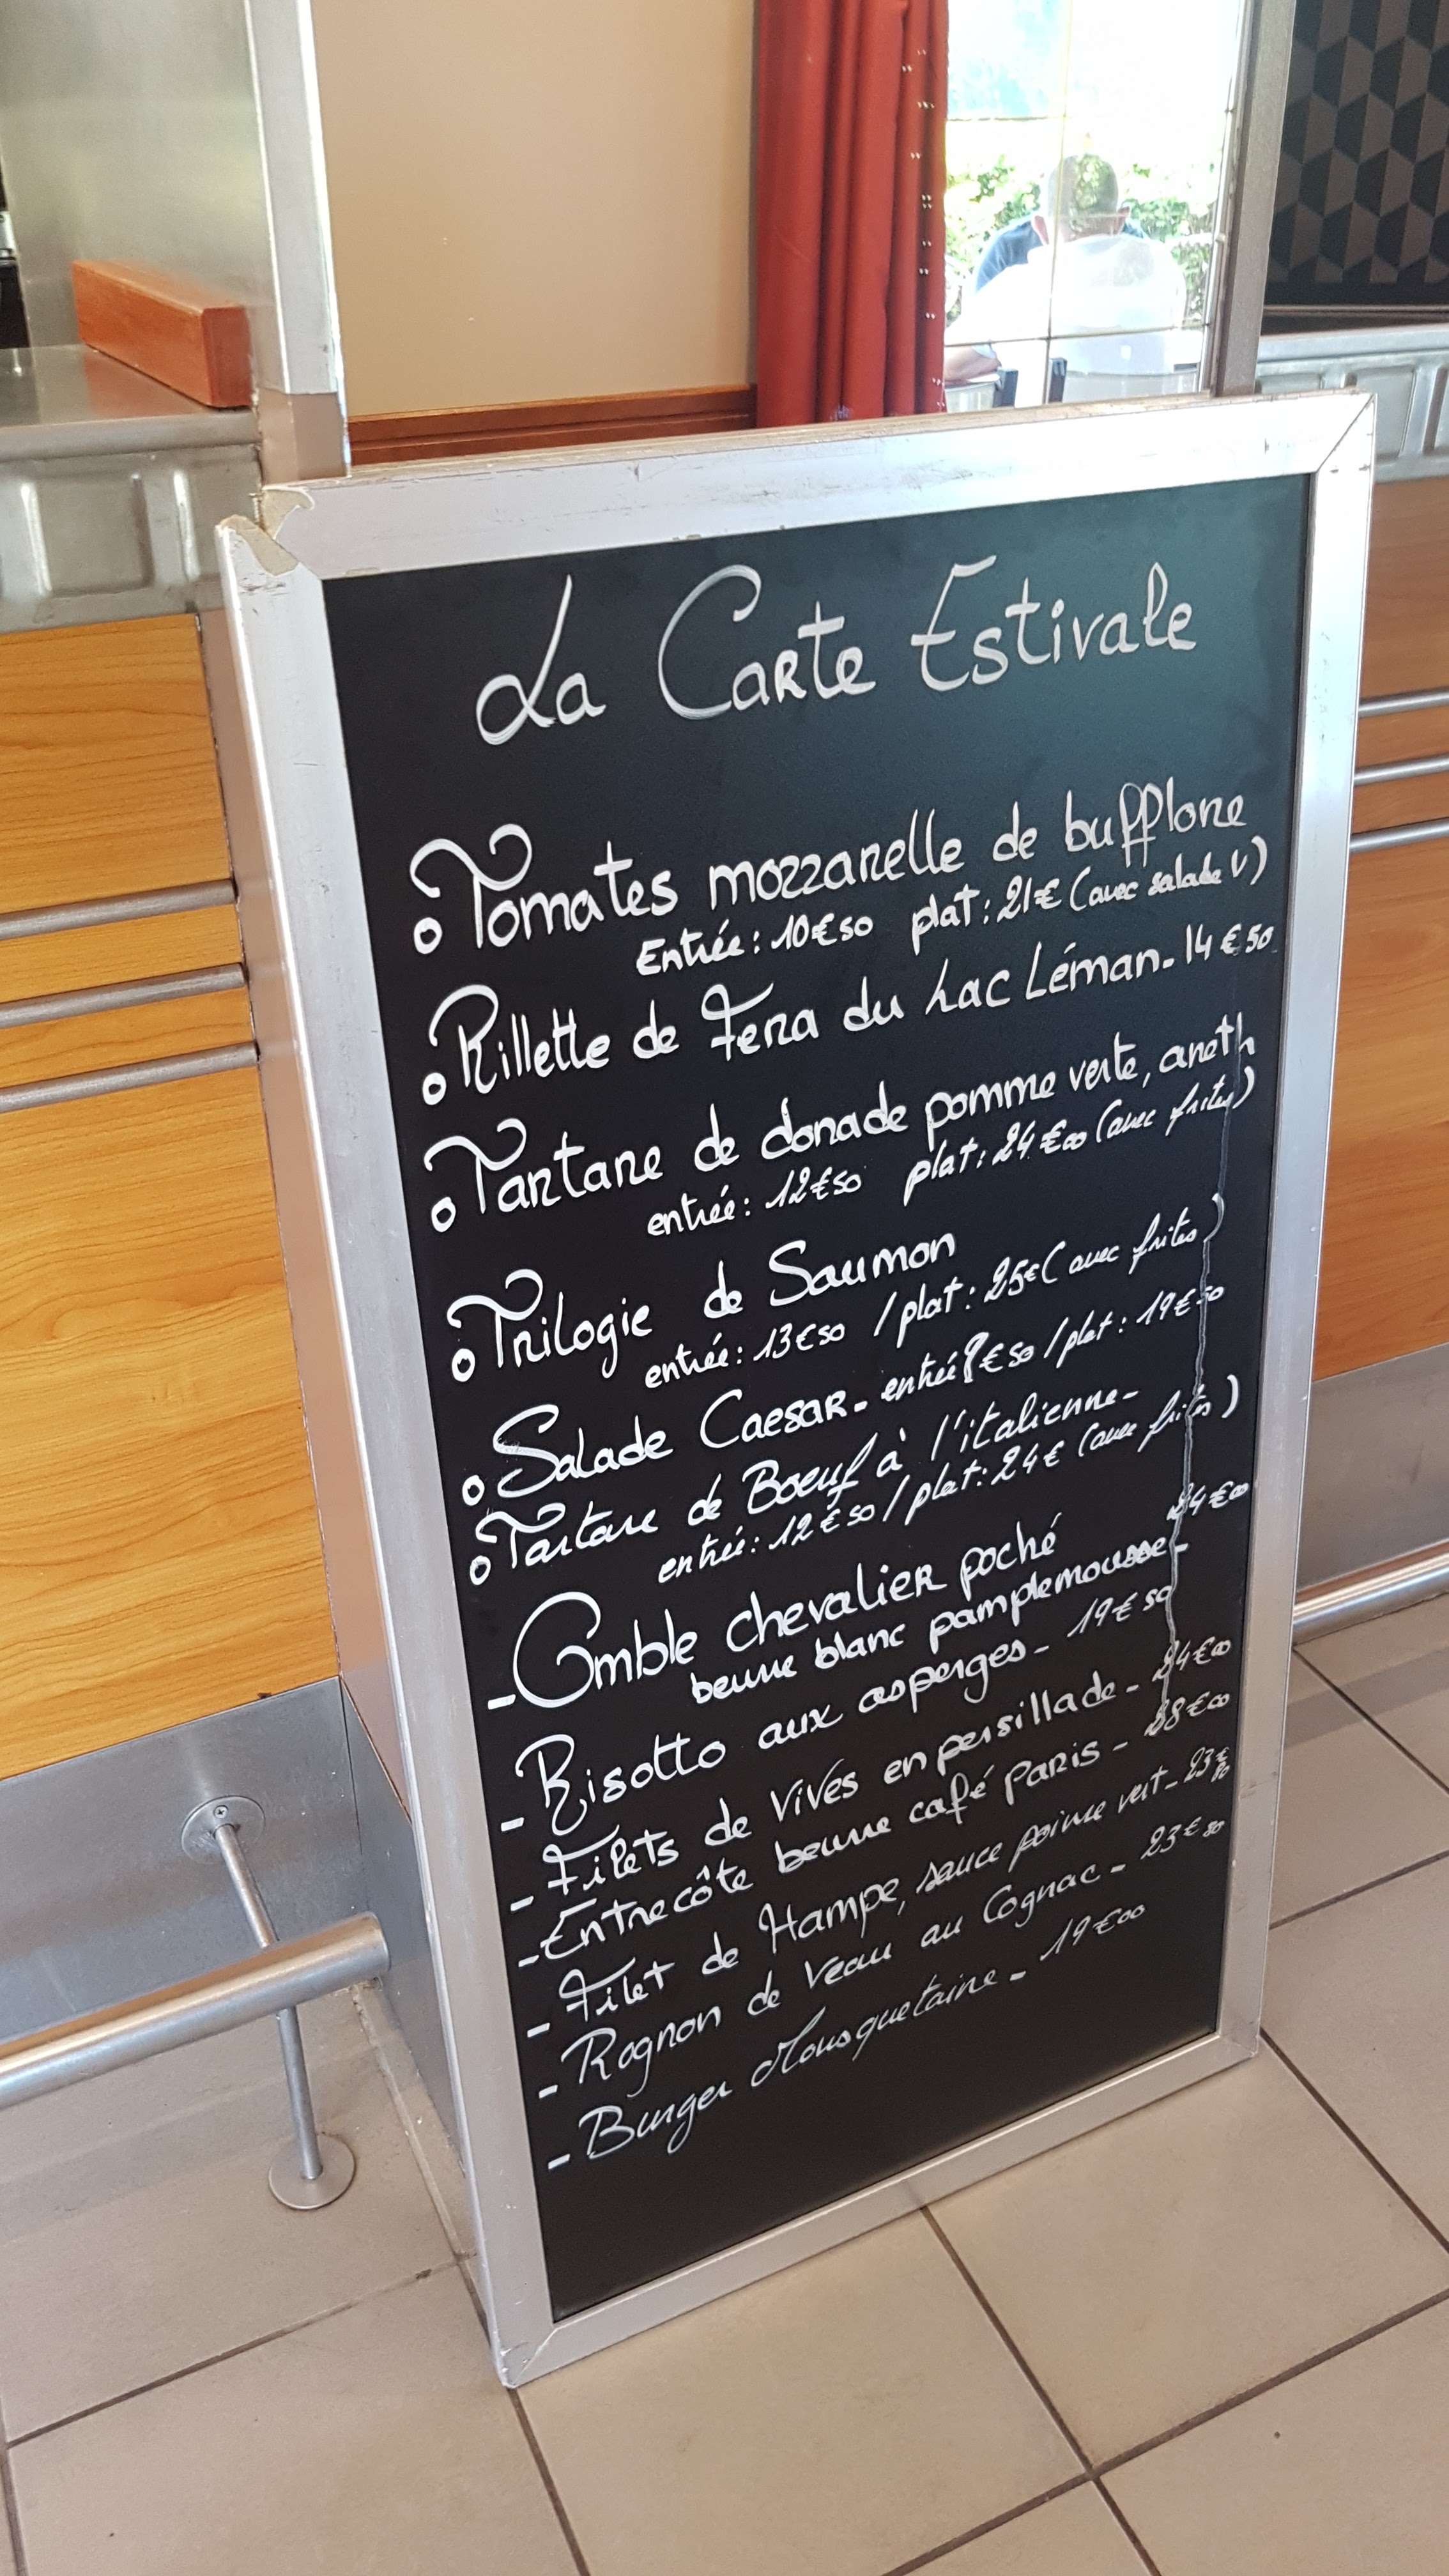 La Carte Estivale
Tomates mozzarelle de bufflone
Entrée: 10€50 plat: 21€ (avec salade V)
Rillette de Fera du Lac Léman - 14€50
Tartare de dorade pomme verte, aneth
entrée: 12€50 plat: 24€00 (avec frites)
Trilogie de Saumon
entrée: 13€50 / plat: 25€ (avec frites)
Salade Caesar - entrée 8€50 / plat: 19€50
Tartare de Boeuf à l'italienne -
entrée: 12€50 / plat: 24€ (avec frites)
- Omble chevalier poché 24€00
beurre blanc pamplemousse -
- Risotto aux asperges - 19€50
- Filets de vives en persillade - 24€00
- Entrecôte beurre café Paris - 28€00
- Filet de Hampe, sauce poivre vert - 23€
- Rognon de veau au Cognac - 23€50
- Burger Mousquetaire - 19€00